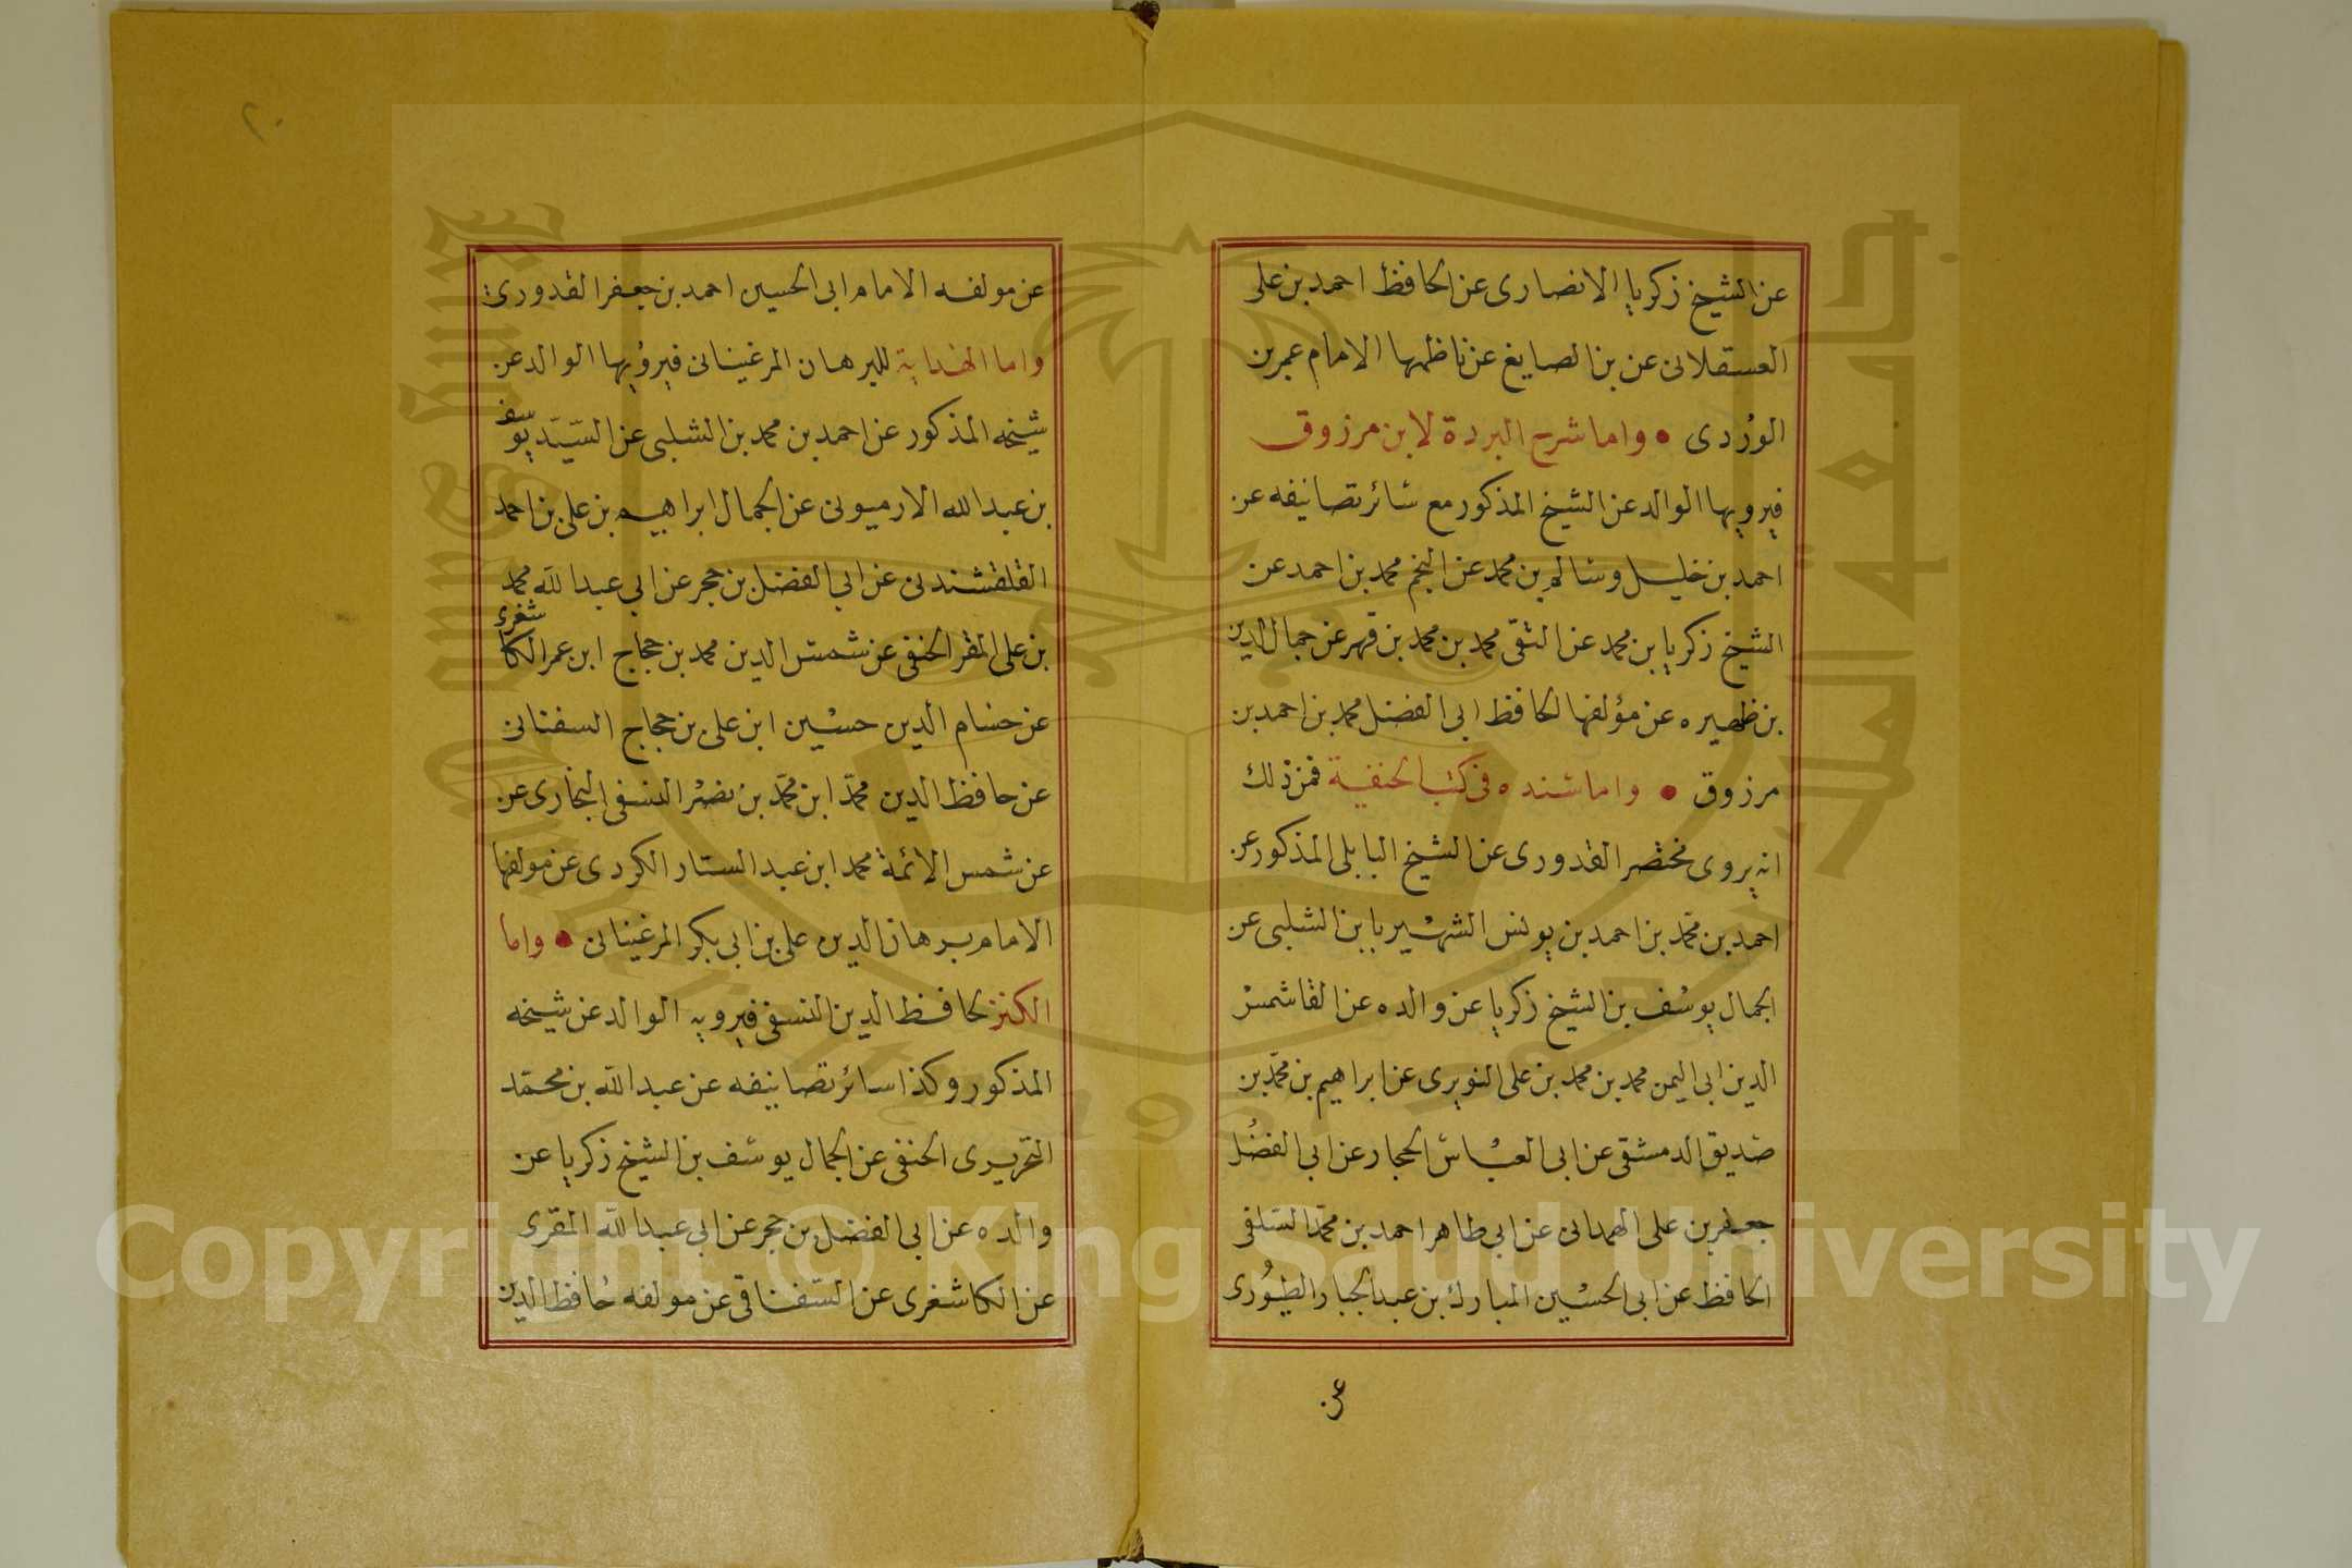 عن الشيخ زكريا الانصارى عن الحافظ احمد بن على
العسقلانى عن بن الصايغ عن ناظمها الامام عمر بن
الوردى • واما شرح البردة لابن مرزوق
فيرويها الوالد عن الشيخ المذكور مع سائر تصانيفه عن
احمد بن خليل وسالم بن محمد عن النجم محمد بن احمد عن
الشيخ زكريا بن محمد عن التقى محمد بن محمد بن فهر عن جمال الدين
بن ظهيره عن مؤلفها الحافظ ابى الفضل محمد بن احمد بن
مرزوق • واما سنده فى كتب الحنفية فمن ذلك
انه يروى مختصر القدورى عن الشيخ البابلى المذكور عن
احمد بن محمد بن احمد بن يونس الشهير بابن الشلبى عن
الجمال يوسف بن الشيخ زكريا عن والده عن الفا شمس
الدين ابى اليمن محمد بن محمد بن على النويرى عن ابراهيم بن محمد بن
صديق الدمشقى عن ابى العباس الحجار عن ابى الفضل
جعفر بن على الهمدانى عن ابى طاهر احمد بن محمد السلفى
الحافظ عن ابى الحسين المبارك بن عبد الجبار الطيورى
عن
٢٠
عن مولفه الامام ابى الحسين احمد بن جعفر القدورى
واما الهداية للبرهان المرغينانى فيرويها الوالد عن
شيخه المذكور عن احمد بن محمد بن الشلبى عن السيد يوسف
بن عبد الله الارميونى عن الجمال ابراهيم بن على بن احمد
القلقشندى عن ابى الفضل بن حجر عن ابى عبد الله محمد
بن على المقر الحنفى عن شمس الدين محمد بن حجاج ابن عمر الكاشغرى
عن حسام الدين حسين ابن على بن حجاج السفنانى
عن حافظ الدين محمد ابن محمد بن نصر النسفى البخارى عن
عن شمس الائمة محمد ابن عبد الستار الكردى عن مولفها
الامام برهان الدين على بن ابى بكر المرغينانى • واما
الكنز لحافظ الدين النسفى فيرويه الوالد عن شيخه
المذكور وكذا سائر تصانيفه عن عبد الله بن محمد
التحريرى الحنفى عن الجمال يوسف بن الشيخ زكريا عن
والده عن ابى الفضل بن حجر عن ابى عبد الله المقرى
عن الكاشغرى عن السفناقى عن مولفه حافظ الدين
Copyright © King Saud University